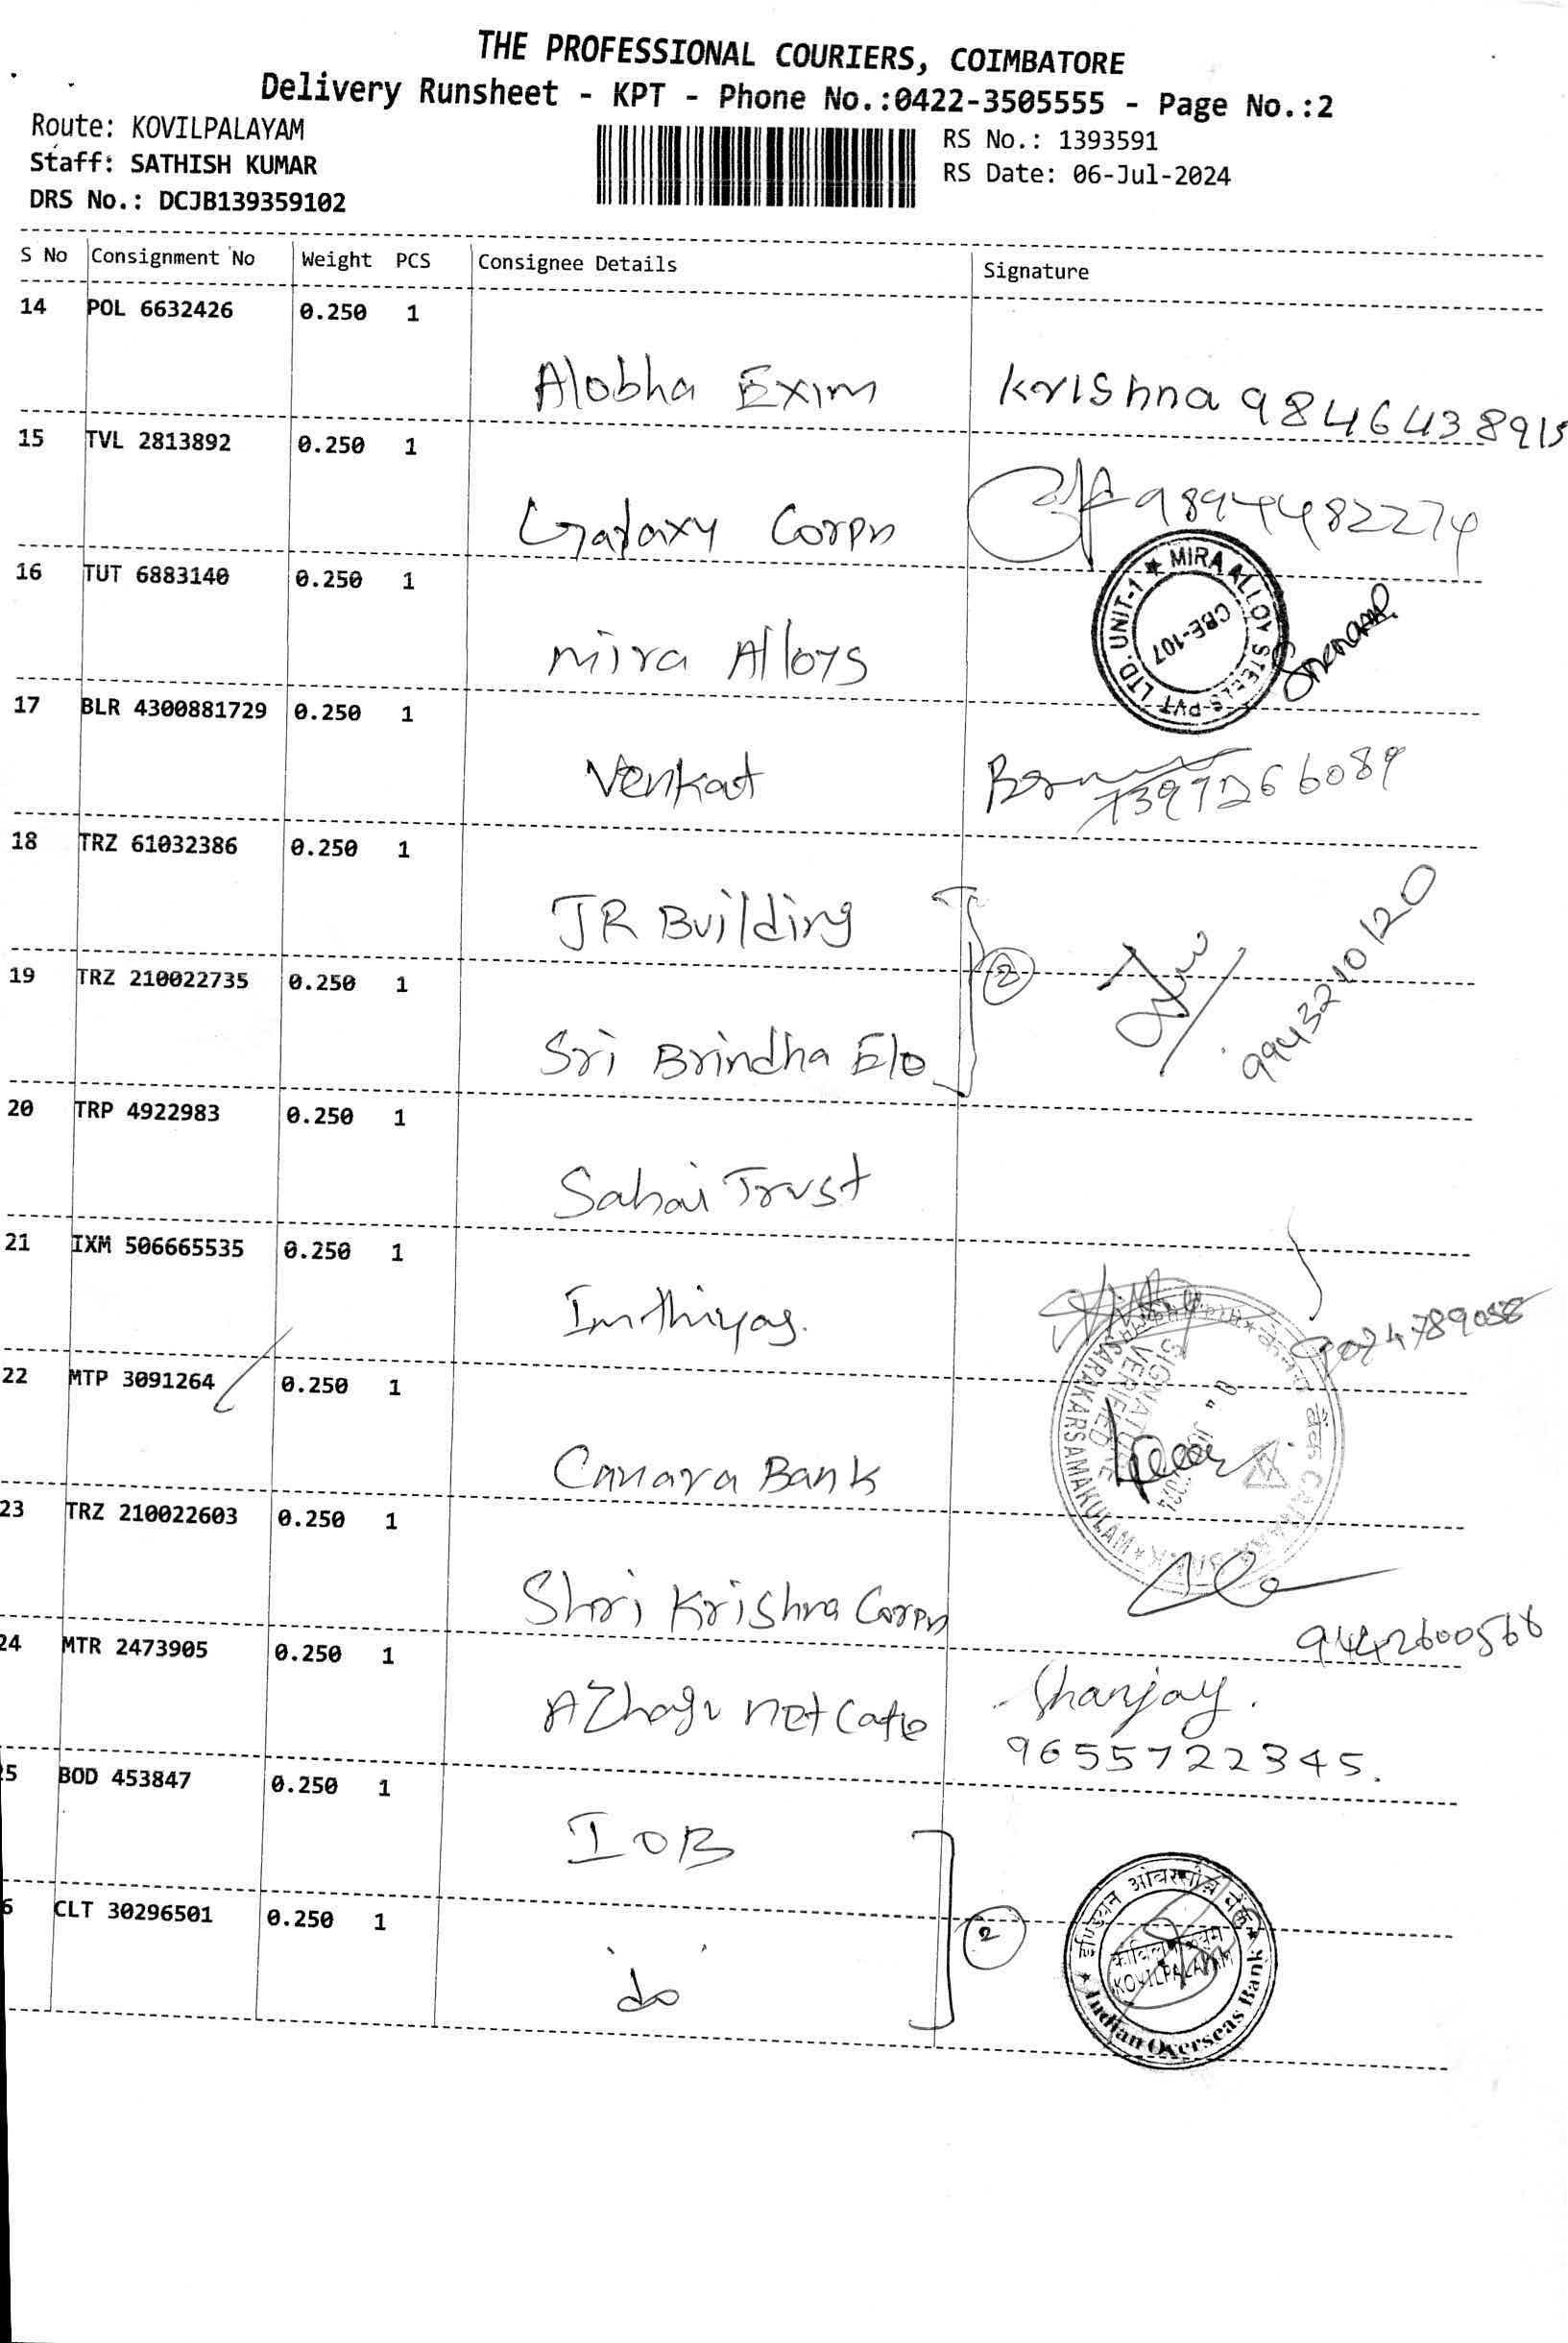 THE PROFESSIONAL COURIERS, COIMBATORE
Delivery Runsheet - KPT - Phone No.:0422-3505555 - Page No.:2
Route: KOVILPALAYAM
RS No.: 1393591
Staff: SATHISH KUMAR
RS Date: 06-Jul-2024
DRS No.: DCJB139359102
S No Consignment No Weight PCS Consignee Details Signature
14 POL 6632426 0.250 1
Alobha Exim Krishna 9846438915
15 TVL 2813892 0.250 1
Galaxy Corpn 9894482274
16 TUT 6883140 0.250 1
Mira Alloys
MIRA ALLOY STEELS PVT LTD. UNIT-1
CBE-107
17 BLR 4300881729 0.250 1
Venkat 7397266089
18 TRZ 61032386 0.250 1
JR Building
2
9943210120
19 TRZ 210022735 0.250 1
Sri Brindha Elo
20 TRP 4922983 0.250 1
Sahai Trust
21 IXM 506665535 0.250 1
Imthiyas.
22 MTP 3091264 0.250 1
Canara Bank
SIGNATURE
VERIFIED
SARAKARSAMAKULAM
23 TRZ 210022603 0.250 1
Shri Krishna Corpn
9442600568
24 MTR 2473905 0.250 1
Azhagu net Cafe Shanjay.
9655722345.
5 BOD 453847 0.250 1
IOB
6 CLT 30296501 0.250 1
do
2
इण्डियन ओवरसीज़ बैंक
KOVILPALAYAM
Indian Overseas Bank